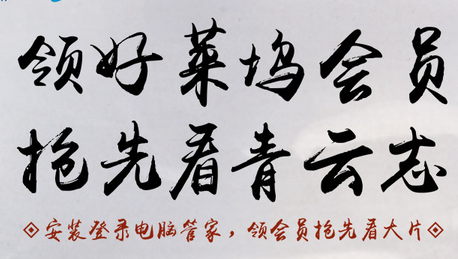 领好莱坞会员
抢先看青云志
安装登录电脑管家，领会员抢先看大片